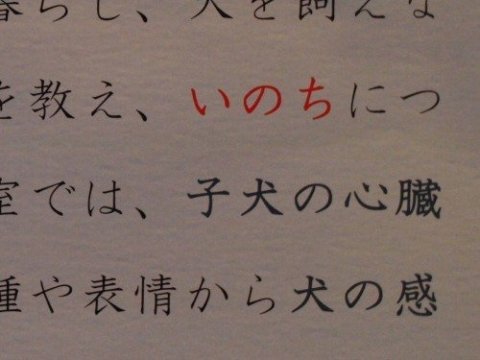 暮らし、犬を飼えな
を教え、いのちにつ
室では、子犬の心臓
種や表情から犬の感